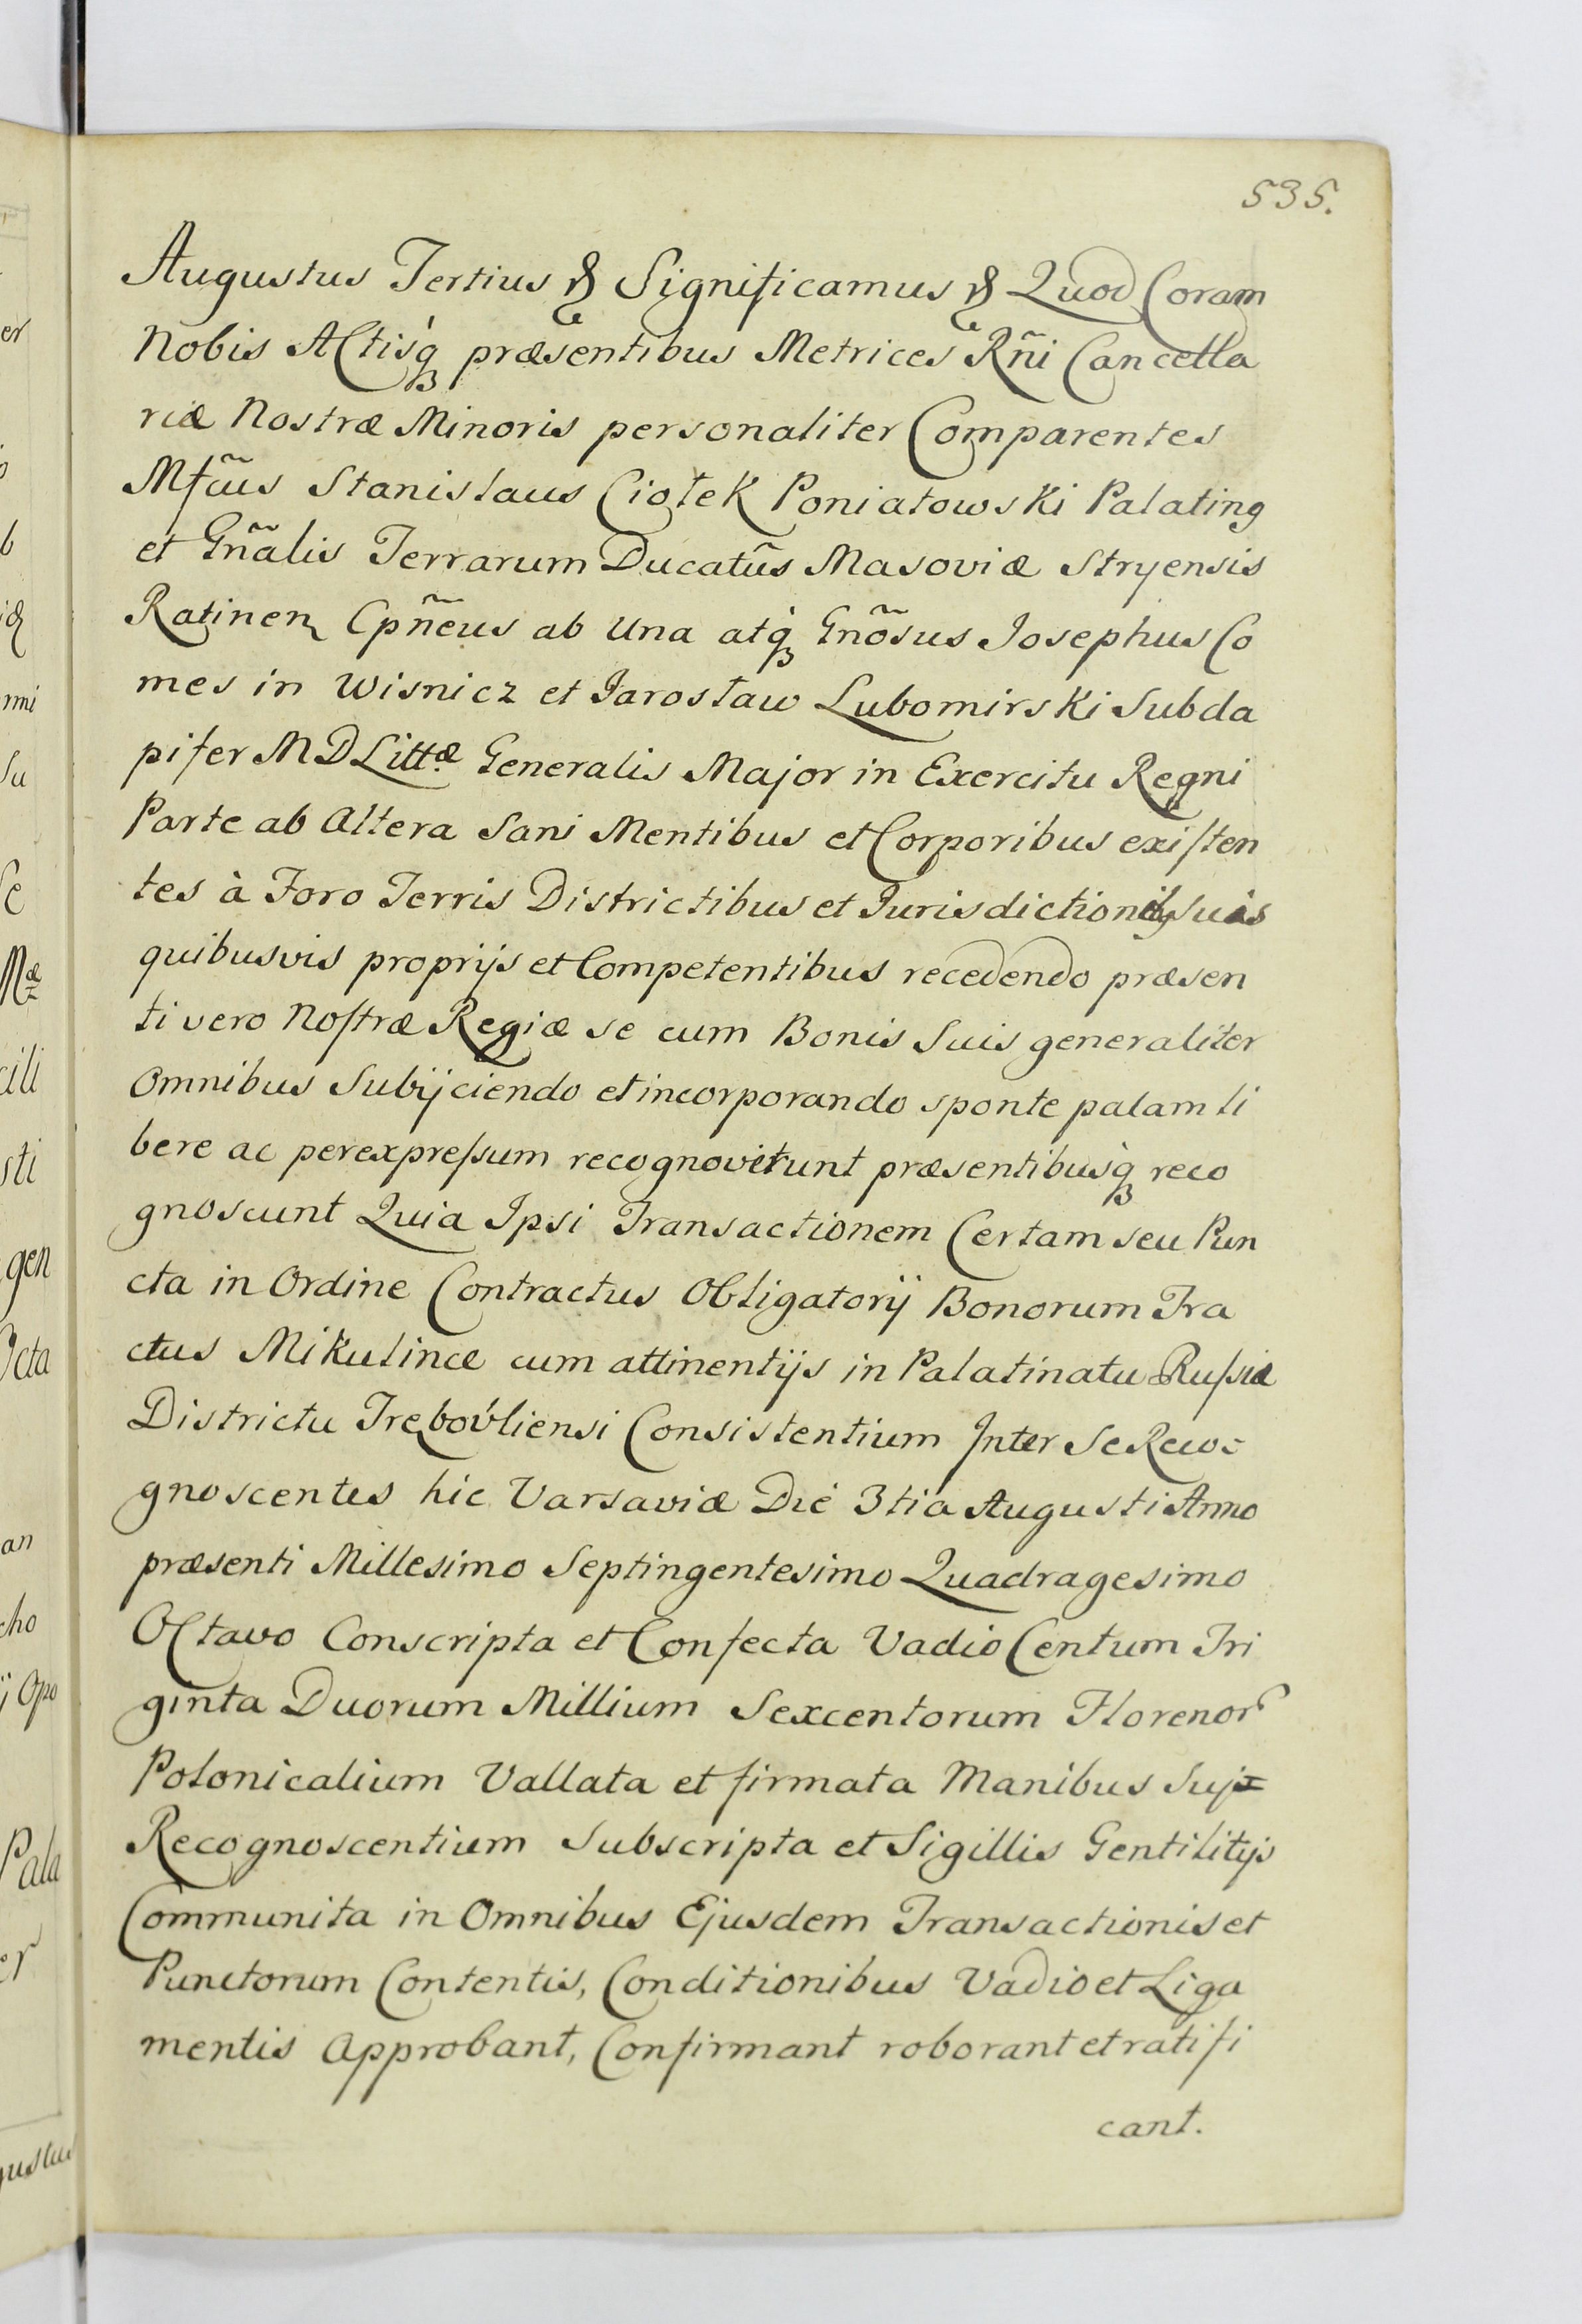 535.
Augustus Tertius &c Significamus &c Quod Coram
Nobis Actisq́ præsentibus Metrices Rñi Cancella
riæ Nostræ Minoris personaliter Comparentes
Mfc̃us Stanislaus Ciołek Poniatowski Palatinꝰ
et Gñalis Terrarum Ducatũs Masoviæ Stryensis
Ratinen Cpñeus ab Una atq́ Gnõsus Josephus Co
mes in Wisnicz et Jarosław Lubomirski Subda
pifer MDLittæ Generalis Major in Exercitu Regni
Parte ab Altera Sani Mentibus et Corporibus existen
tes à Foro Terris Districtibus et Jurisdictionibꝰ suis
quibusvis proprijs et Competentibus recedendo præsen
ti vero Nostræ Regiæ se cum Bonis Suis generaliter
Omnibus Subijciendo et incorporando sponte palam li
bere ac per expressum recognoverunt præsentibusq́ reco
gnoscunt Quia Ipsi Transactionem Certam seu Pun
cta in Ordine Contractus Obligatorij Bonorum Tra
ctus Mikulince cum attinentijs in Palatinatu Russiæ
Districtu Trebovliensi Consistentium Inter Se Reco=
gnoscentes hic Varsaviæ Die 3tia Augusti Anno
præsenti Millesimo Septingentesimo Quadragesimo
Octavo Conscripta et Confecta Vadio Centum Tri
ginta Duorum Millium Sexcentorum Florenor
Polonicalium Vallata et firmata Manibus
Recognoscentium Subscripta et Sigillis Gentilitijs
Communita in Omnibus Ejusdem Transactionis et
Punctorum Contentis, Conditionibus Vadio et Liga
mentis Approbant, Confirmant roborant et ratifi
cant.